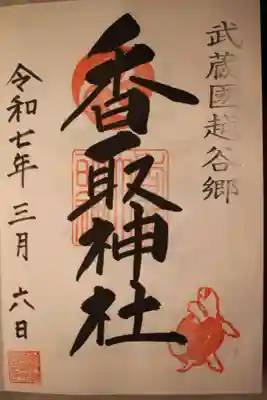 武蔵國越谷郷
香取神社
令和七年三月六日